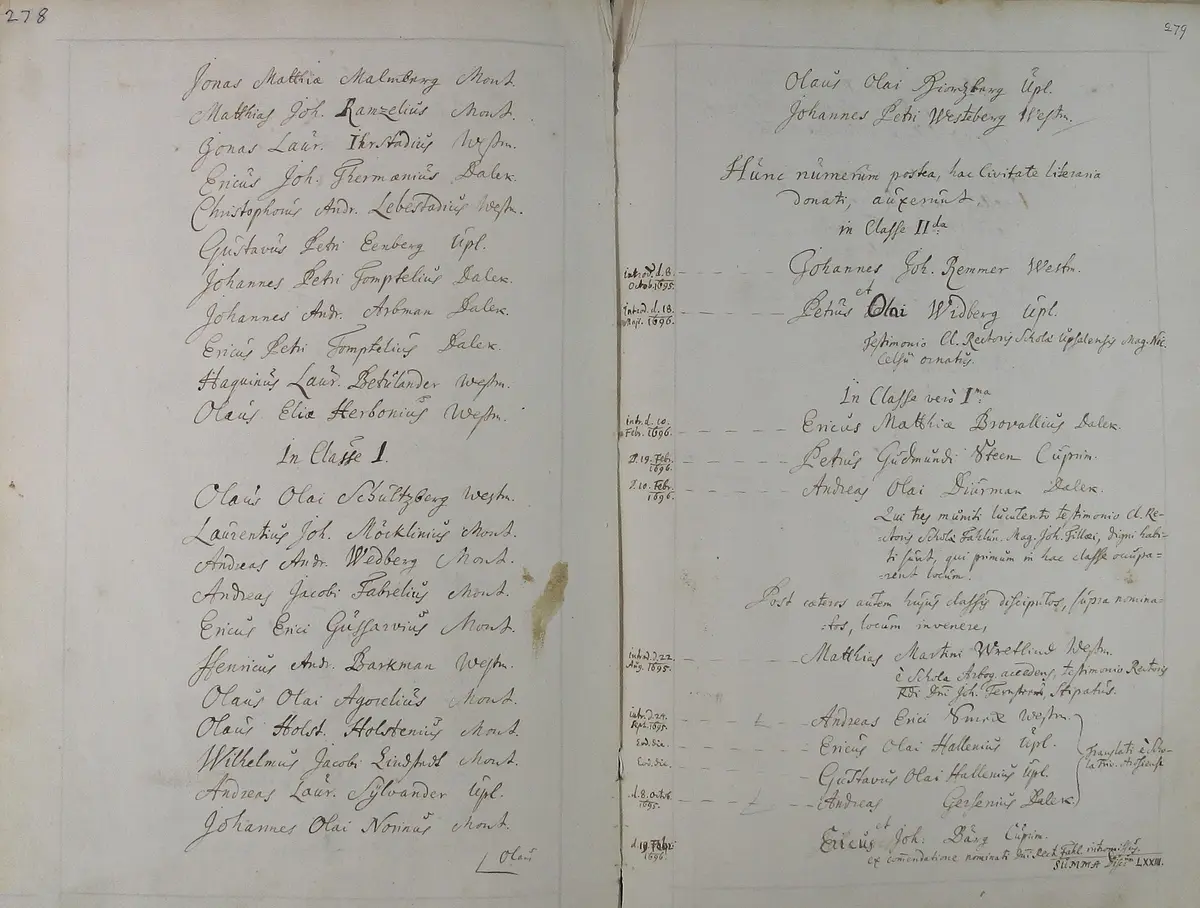 278
Jonas Matthiæ Malmberg Mont.
Matthias Joh. Ramzelius Mont.
Jonas Laur. Ihrstadius Westm.
Ericus Joh. Thermænius Dalek.
Christophorus Andr. Lebestadius Westm.
Gustavus Petri Eenberg Upl.
Johannes Petri Tomptelius Dalek.
Johannes Andr. Arbman Dalek.
Ericus Petri Tomptelius Dalek.
Haquinus Laur. Betulander Westm.
Olaus Eliæ Herbonius Westm.
In Classe I.
Olaus Olai Schultzberg Westm.
Laurentius Joh. Möcklinius Mont.
Andreas Andr. Wedberg Mont.
Andreas Jacobi Fabrelius Mont.
Ericus Erici Gussarvius Mont.
Henricus Andr. Barkman Westm.
Olaus Olai Agorelius Mont.
Olaus Holst. Holstenius Mont.
Wilhelmus Jacobi Lindstedt Mont.
Andreas Laur. Sylvander Upl.
Johannes Olai Norinus Mont.
Olaus
279
Olaus Olai Biorgberg Upl.
Johannes Petri Westeberg Westm.
Hunc numerum postea, hac Civitate literaria
donati, auxerunt
in Classe IIda
introd. d. 8. Octob. 1695. Johannes Joh. Remmer Westm.
et
introd. d. 18. Maji. 1696. Petrus Olai Widberg Upl.
Testimonio Cl. Rectoris Scholæ Upsalensis Mag. Nic.
Celsii ornatus.
In Classe verò Ima
intr. d. 10. Febr. 1696. Ericus Matthiæ Brovallius Dalek.
d. 19. Febr. 1696. Petrus Gudmundi Steen Cuprim.
d. 10. Febr. 1696. Andreas Olai Diurman Dalek.
Qui tres muniti luculento testimonio Cl. Re-
ctoris Scholæ Fahlun. Mag. Joh. Fillæi, digni habi-
ti sunt, qui primum in hac classe occupa-
rent locum.
Post cæteros autem hujus classis discipulos, supra nomina-
tos, locum invenere,
introd. d. 22. Aug. 1695. Matthias Martini Wretlind Westm.
è Schola Arbog. accedens, testimonio Rectoris
Rdi Dni Joh. Stipatus.
intr. d. 24. Sept. 1695. Andreas Erici Westm.
Eod. die. Ericus Olai Hallenius Upl.
Eod. die. Gustavus Olai Hallenius Upl.
d. 8. Octob. 1695. Andreas Gersenius Dalek.
Translati è Scho-
la Triv. Arosiense
et
d. 19. Febr. 1696. Ericus Joh. Bärg Cuprim.
ex comendatione nominati Dni Rect. Fahl. intromissus.
SUMMA LXXIII.